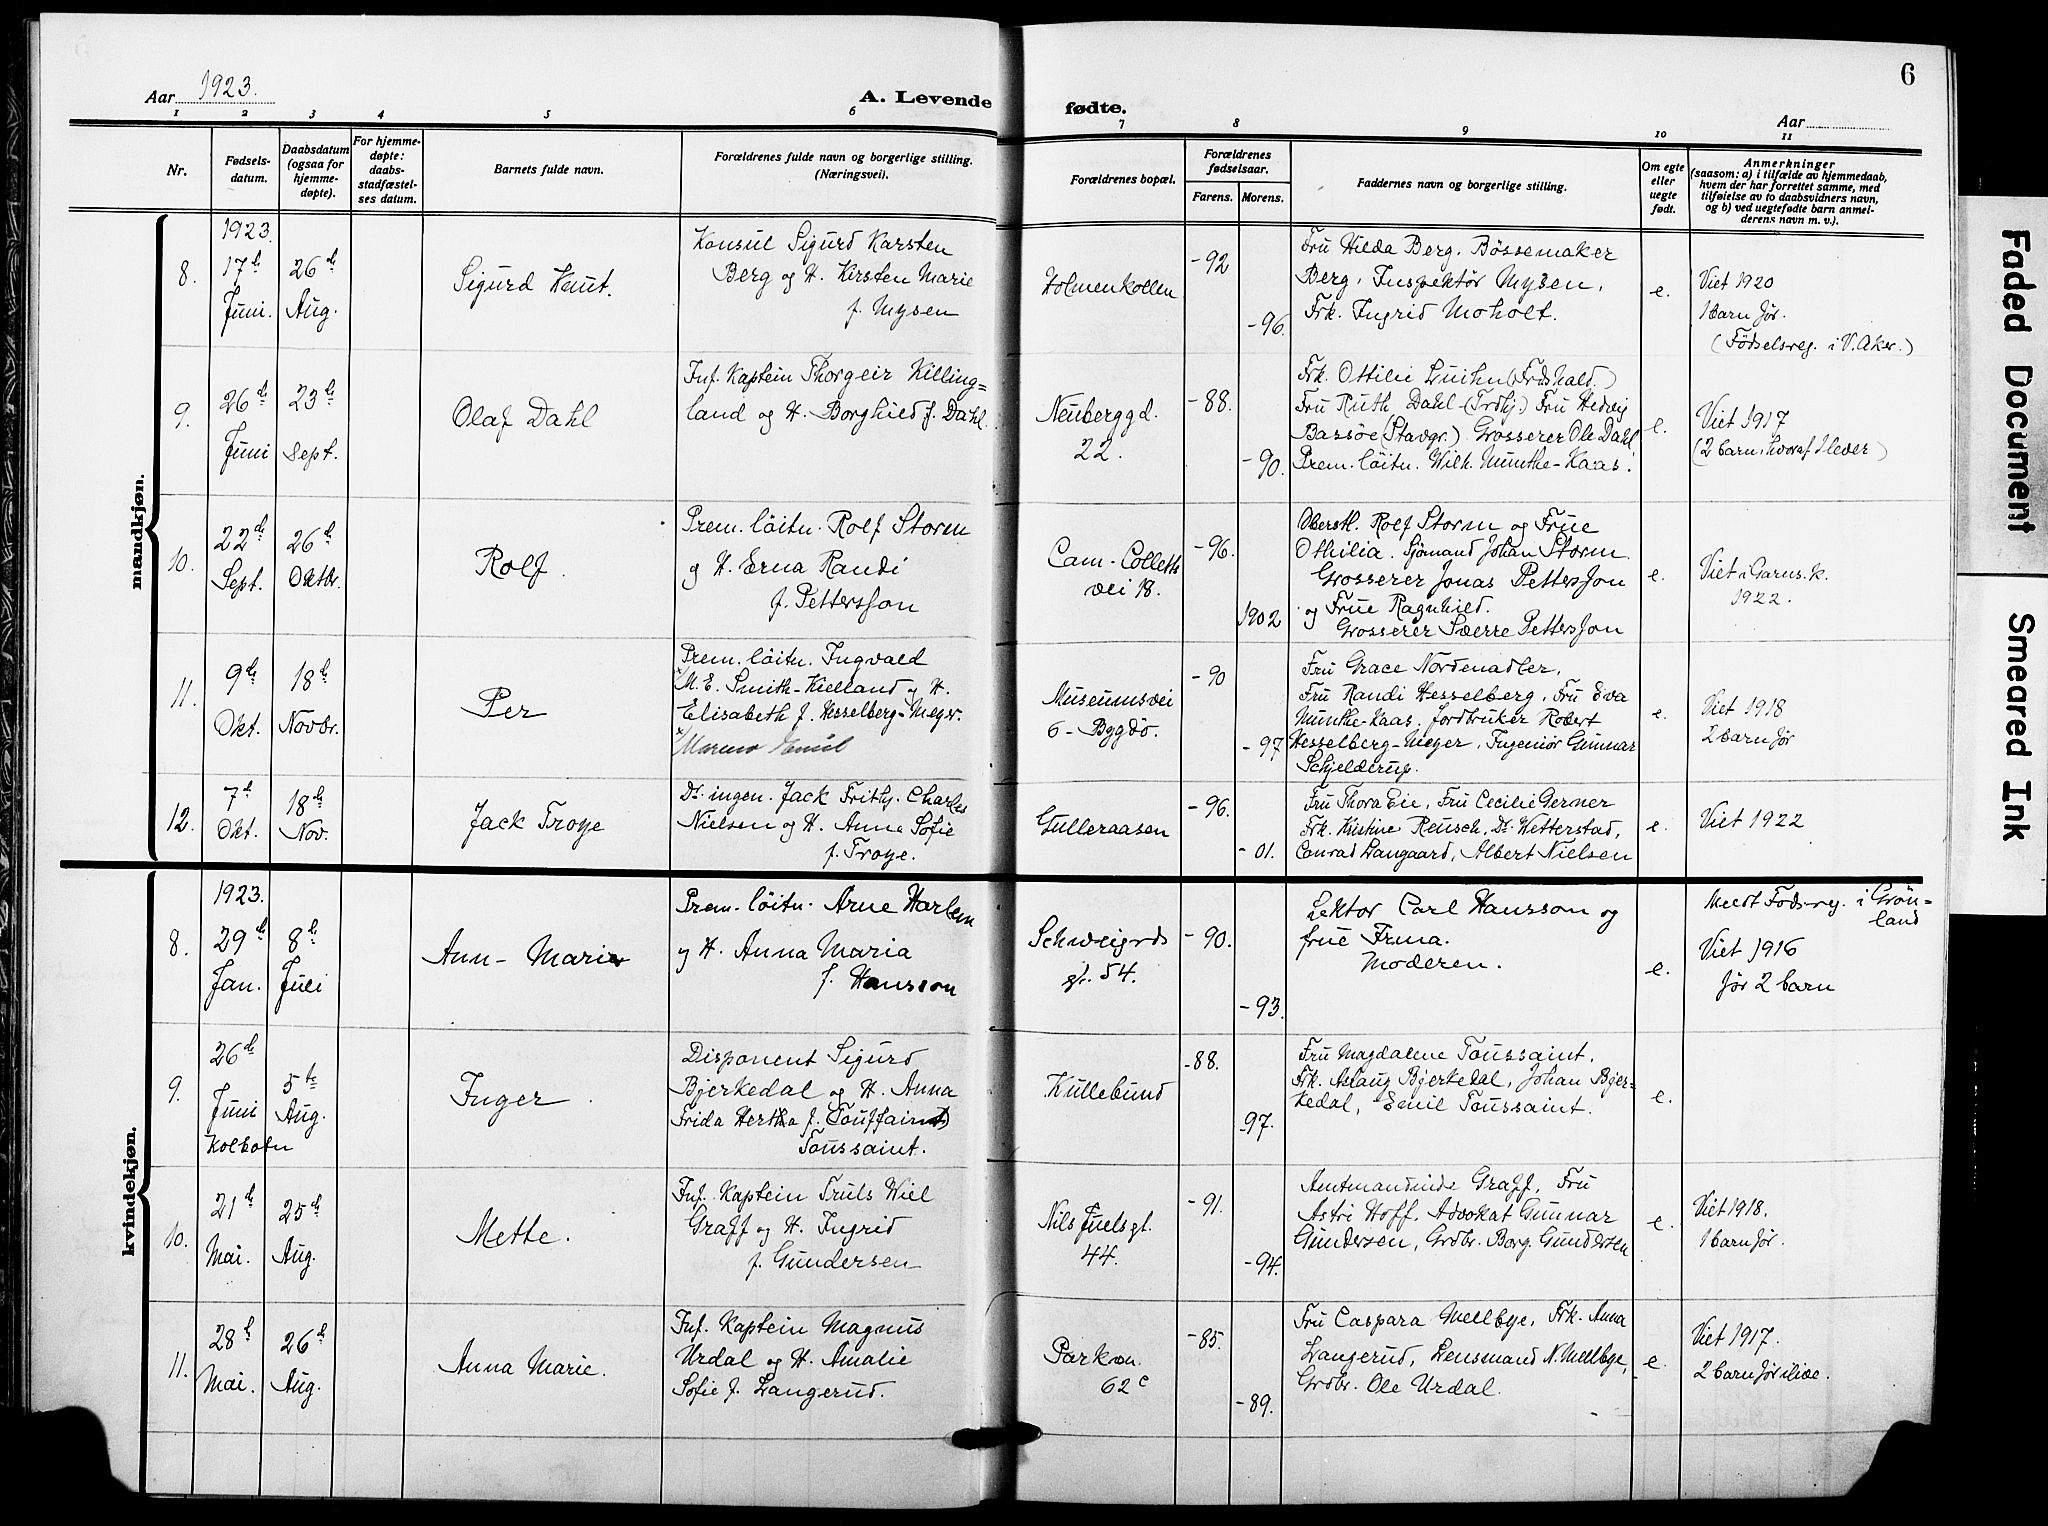 6
Aar 1923.
A. Levende fødte.
Aar
1 2 3 4 5 6 7 8 9 10 11
Nr.
Fødsels-
datum.
Daabsdatum
(ogsaa for
hjemme-
døpte).
For hjemme-
døpte:
daabs-
stadfæstel-
ses datum.
Barnets fulde navn.
Forældrenes fulde navn og borgerlige stilling.
(Næringsvei).
Forældrenes bopæl.
Forældrenes
fødselsaar.
Farens. Morens.
Faddernes navn og borgerlige stilling.
Om egte
eller
uegte
født.
Anmerkninger
(saasom: a) i tilfælde av hjemmedaab,
hvem der har forrettet samme, med
tilføielse av to daabsvidners navn,
og b) ved uegtefødte barn anmel-
derens navn m. v.).
mandkjøn.
8.
1923.
17de
Juni.
26de
Aug.
Sigurd Knut.
Konsul Sigurd Karsten
Berg og H. Kirsten Marie
f. Mysen
Holmenkollen
-92
-96.
Fru Hilda Berg. Bøssemaker
Berg, Inspektør Mysen,
Frk. Ingrid Moholt.
e.
Viet 1920
1 barn før.
(Fødselsreg. i V. Aker.)
9.
26de
Juni
23de
Sept.
Olaf Dahl
Inf. Kaptein Thorgeir Killing=
land og H. Borghild f. Dahl.
Neuberggd.
22.
-88.
-90.
Frk. Ottilie Luihn (Frdshald.)
Fru Ruth Dahl (Trdhj.) Fru Hedvig
Bassöe (Stavgr.) Grosserer Ole Dahl
Prem. löitn. Wilh. Munthe-Kaas.
e.
Viet 1917
(2 barn, hvoraf 1 lever)
10.
22de
Sept.
26de
Oktbr.
Rolf.
Prem. löitn. Rolf Storm
og H. Erna Randi
f. Pettersson
Cam. Colletts
vei 18.
-96.
1902
Oberstl. Rolf Storm og Frue
Othilia. Sjömand Johan Storm
Grosserer Jonas Pettersson
og Frue Ragnhild.
Grosserer Sverre Pettersson
e.
Viet i Garns. k.
1922.
11.
9de
Okt.
18de
Novbr.
Per
Prem. löitn. Ingvald
*M. E. Smith-Kielland og H.
Elisabeth f. Hesselberg-Meyer.
*Marino Emil
Museumsvei
6 - Bygdö.
-90
-97
Fru Grace Nordenadler,
Fru Randi Hesselberg, Fru Eva
Munthe-Kaas. Jordbruker Robert
Hesselberg-Meyer, Ingeniör Gunnar
Schjelderup.
e.
Viet 1918
2 barn før
12.
7de
Okt.
18de
Nov.
Jack Troye
Dr. ingen. Jack Frithj. Charles
Nielsen og H. Anna Sofie
f. Troye.
Gulleraasen
-96.
-01.
Fru Thora Eie, Fru Cecilie Gerner
Frk. Kristine Reusch, Dr. Wetterstad,
Conrad Langaard, Albert Nielsen
e.
Viet 1922
kvindekjøn.
8.
1923.
29de
Jan.
8de
Juli
Ann-Marie
Prem. löitn. Arne Harlem
og H. Anna Maria
f. Hansson
Schweigrds
gt. 54.
-90.
-93.
Lektor Carl Hansson og
frue Irma.
Moderen.
e.
Meldt Föds.reg. i Grön-
land
Viet 1916
før 2 barn
9.
26de
Juni
Kolbotn
5te
Aug.
Inger
Disponent Sigurd
Bjerkedal og H. Anna
Frida Hertha f. (Toussaint)
Toussaint.
Kullebund
-88.
-97.
Fru Magdalene Toussaint,
Frk. Aslaug Bjerkedal, Johan Bjer-
kedal, Emil Toussaint.
e.
10.
21de
Mai.
25de
Aug.
Mette.
Inf. Kaptein Truls Wiel
Graff og H. Ingrid
f. Gundersen
Nils Juels gt.
44.
-91.
-94.
Amtmandinde Graff, Fru
Astri Hoff. Advokat Gunnar
Gundersen, Grdbr. Borg. Gundersen
e.
Viet 1918.
1 barn før.
11.
28de
Mai.
26de
Aug.
Anna Marie.
Inf. Kaptein Magnus
Urdal og H. Amalie
Sofie f. Langerud.
Parkvn.
62c
-85.
-89.
Fru Caspara Mellbye, Frk. Anna
Langerud, Lensmand N. Mellbye,
Grdbr. Ole Urdal.
e.
Viet 1917.
2 barn før ilive.
Faded Document
Smeared Ink